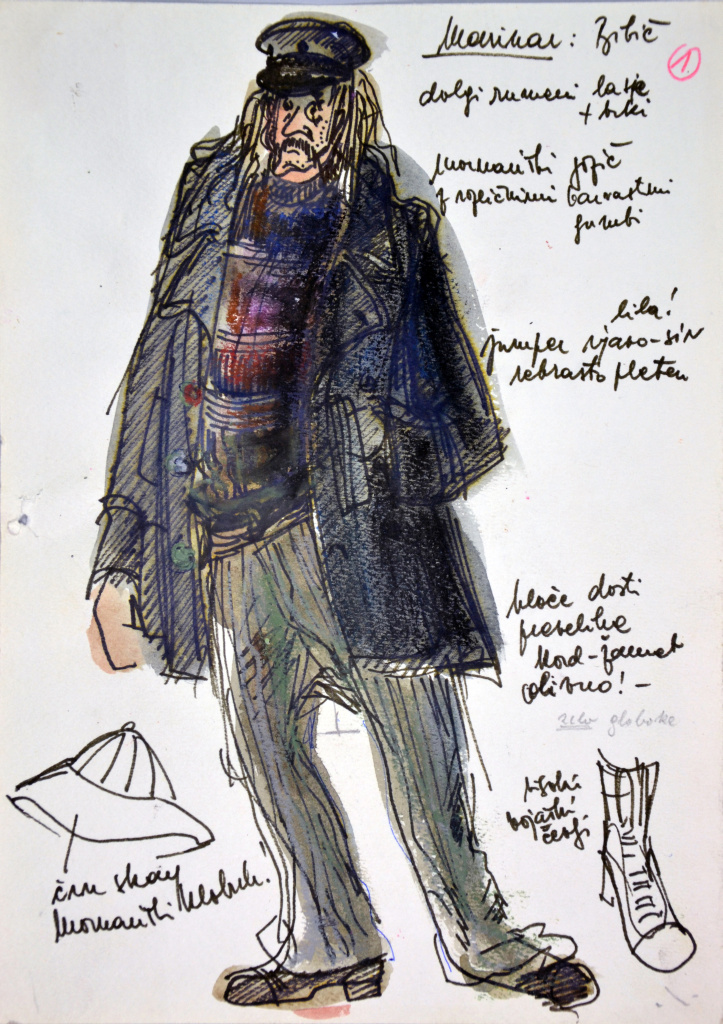 Marinar: Bibič
1.
dolgi rumeni lasje
+ brki
mornariški jopič
z različnimi barvastimi
gumbi
lila!
jumper rjavo-siv
rebrasto pleten
hlače dosti
prevelike
kord-žamet
olivno!-
zelo globoke
visoki
vojaški
čevlji
črn
mornariški klobuk!